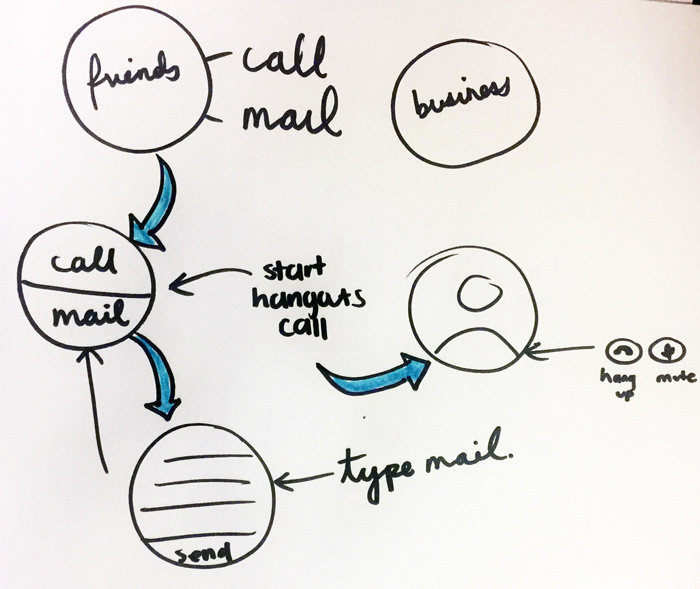 friends
call
mail
business
call
mail
start
hangouts
call
hang
up
mute
type mail.
send